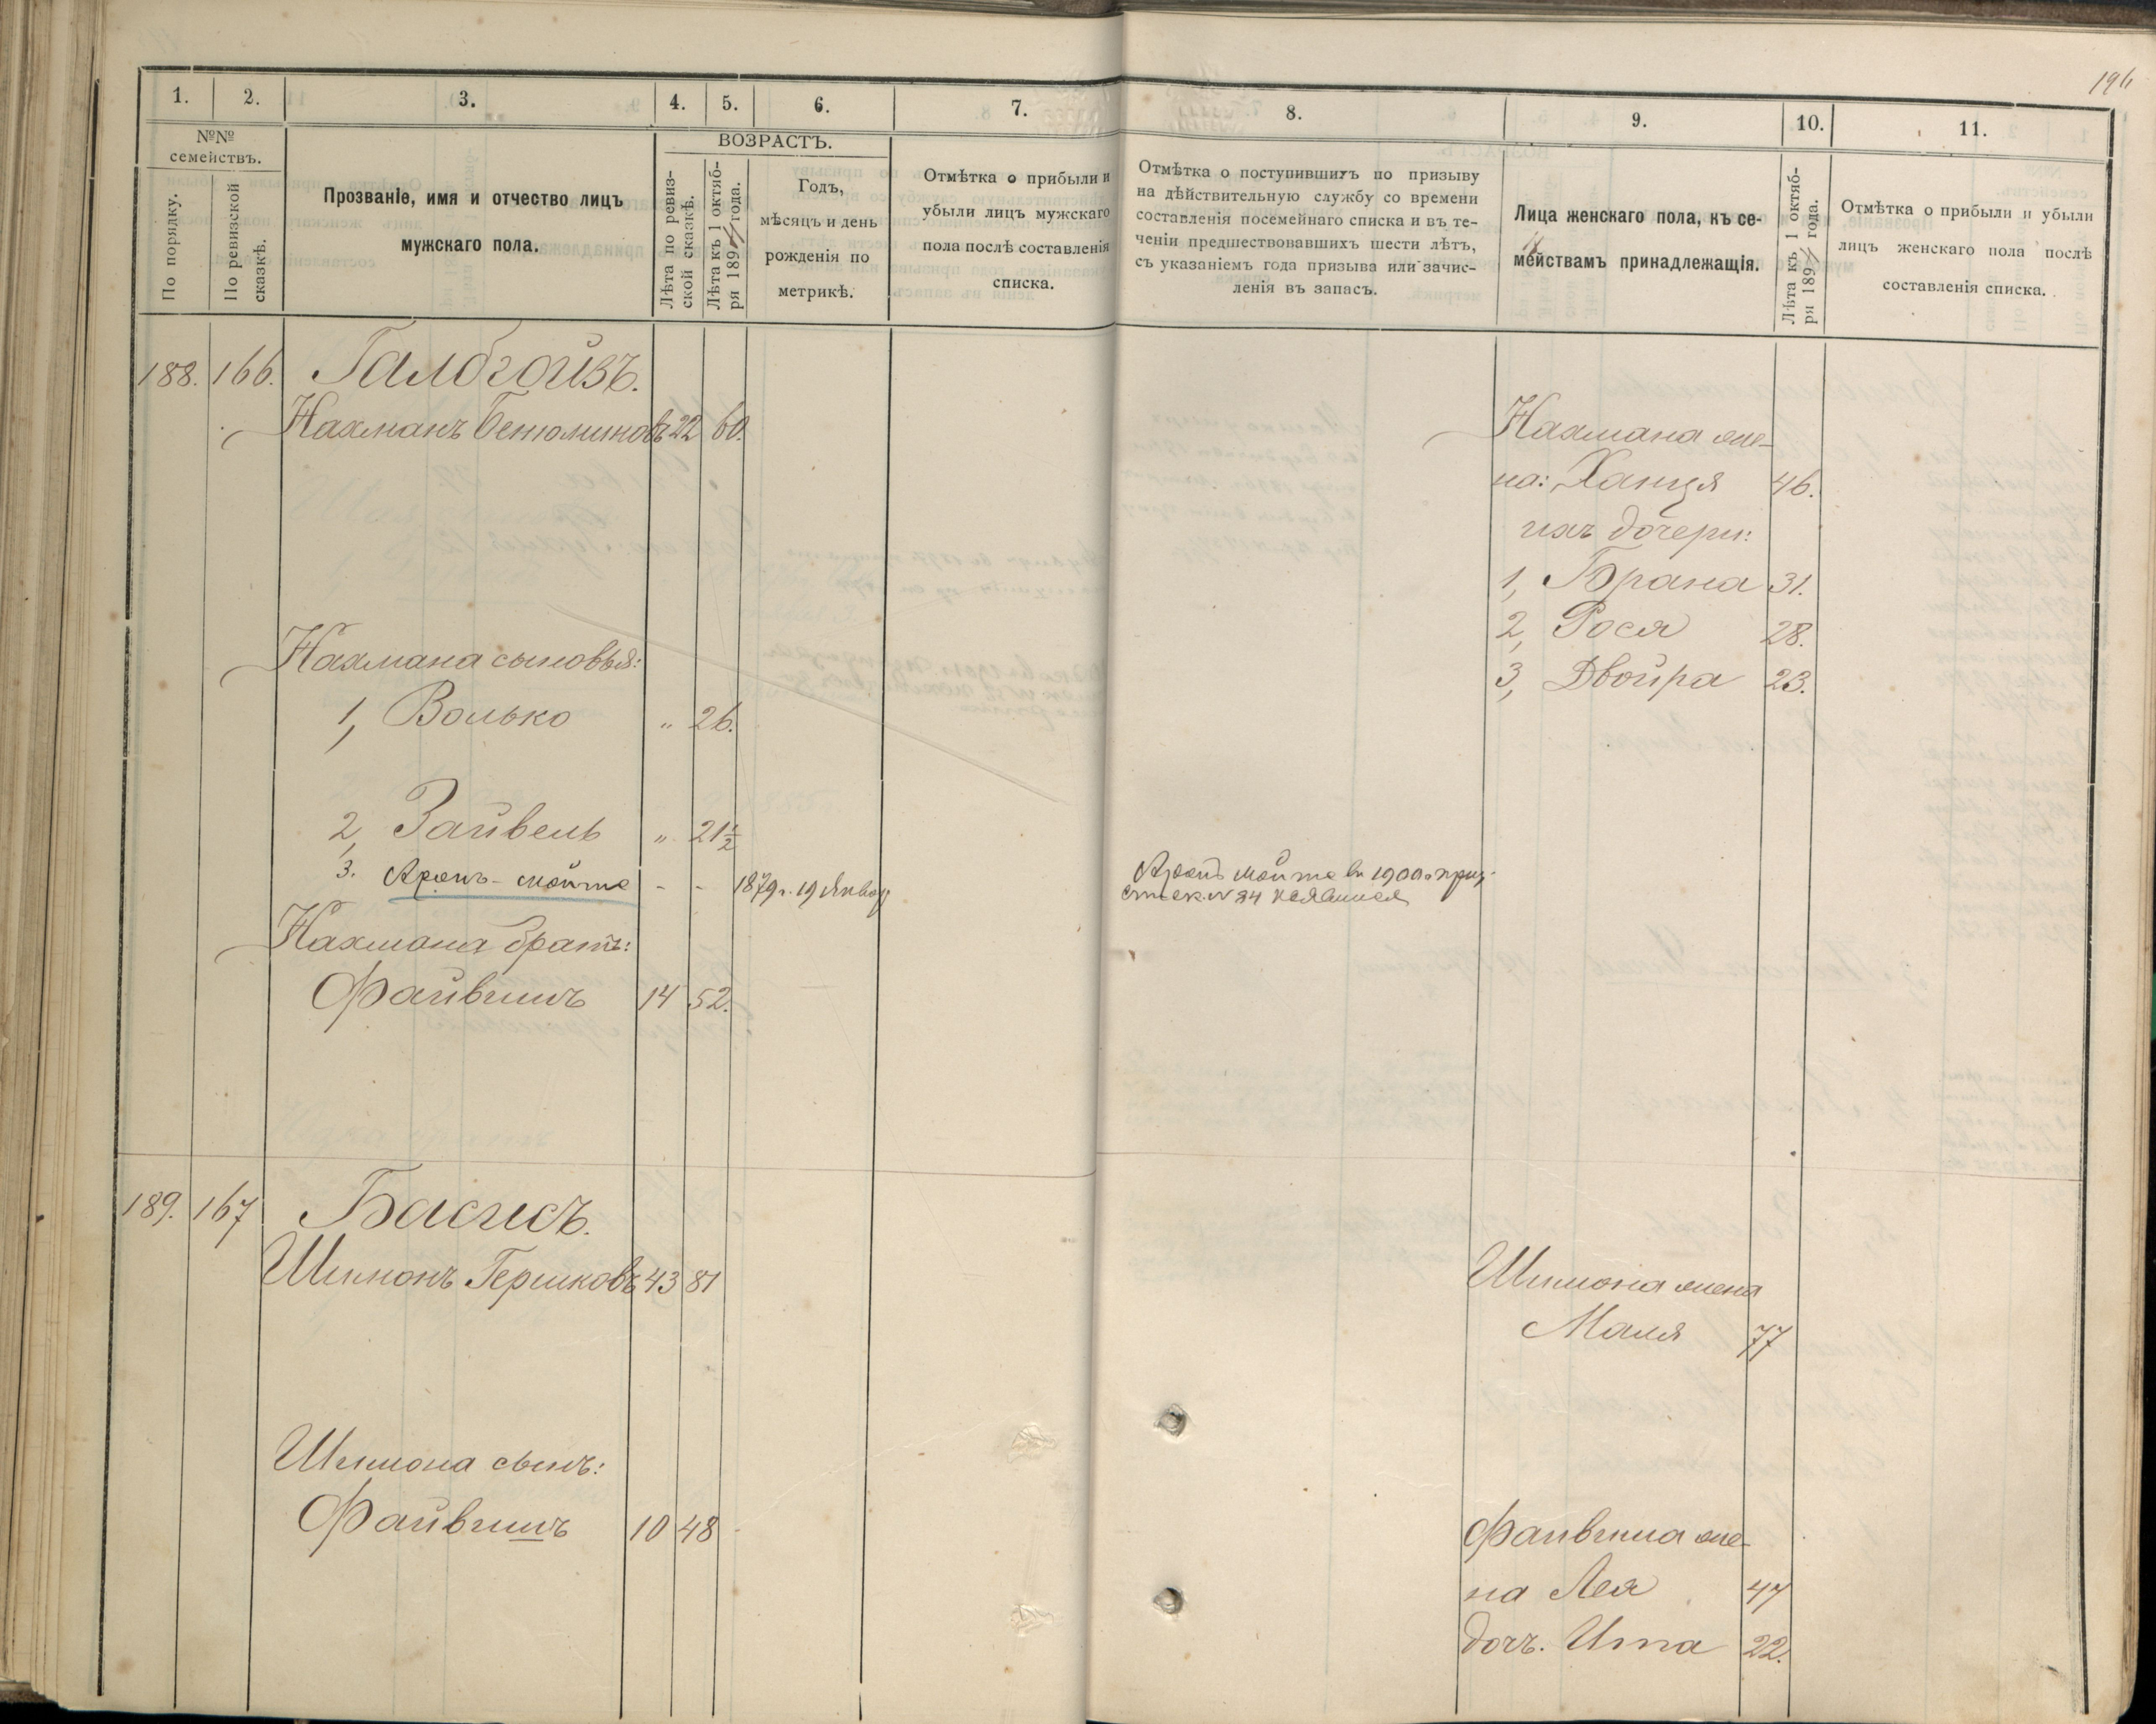 196
1. 2. 3. 4. 5. 6. 7. 8. 9. 10. 11.
№№ семействъ.
По порядку.
По ревизской сказкѣ.
Прозваніе, имя и отчество лицъ
мужскаго пола.
ВОЗРАСТЪ.
Лѣта по ревиз-
ской сказкѣ.
Лѣта къ 1 октяб-
ря 1894 года.
Годъ,
мѣсяцъ и день
рожденія по
метрикѣ.
Отмѣтка о прибыли и
убыли лицъ мужскаго
пола послѣ составленія
списка.
Отмѣтка о поступившихъ по призыву
на дѣйствительную службу со времени
составленія посемейнаго списка и въ те-
ченіи предшествовавшихъ шести лѣтъ,
съ указаніемъ года призыва или зачис-
ленія въ запасъ.
Лица женскаго пола, къ се-
мействамъ принадлежащія.
Лѣта къ 1 октяб-
ря 1894 года.
Отмѣтка о прибыли и убыли
лицъ женскаго пола послѣ
составленія списка.
188. 166. Галбгойзъ.
Нахманъ Бенюминовъ 22 60.
Нахмана же-
на: Ханця 46.
ихъ дочери:
1, Брана 31.
2, Рося 28.
3, Двойра 23.
Нахмана сыновья:
1, Волько " 26.
2, Зайвель " 21½
3. Аронъ-Мойше - - 1879 г. 19 Январ
Аронъ Мойше въ 1900 г. приз.
№ 34 неявился
Нахмана братъ:
Файвишъ 14 52.
189. 167 Басисъ.
Шимонъ Гершковъ 43 81
Шимона жена
Маля 77
Шимона сынъ:
Файвишъ 10 48
Файвиша же-
на Лея 47
дочь. Итта 22.